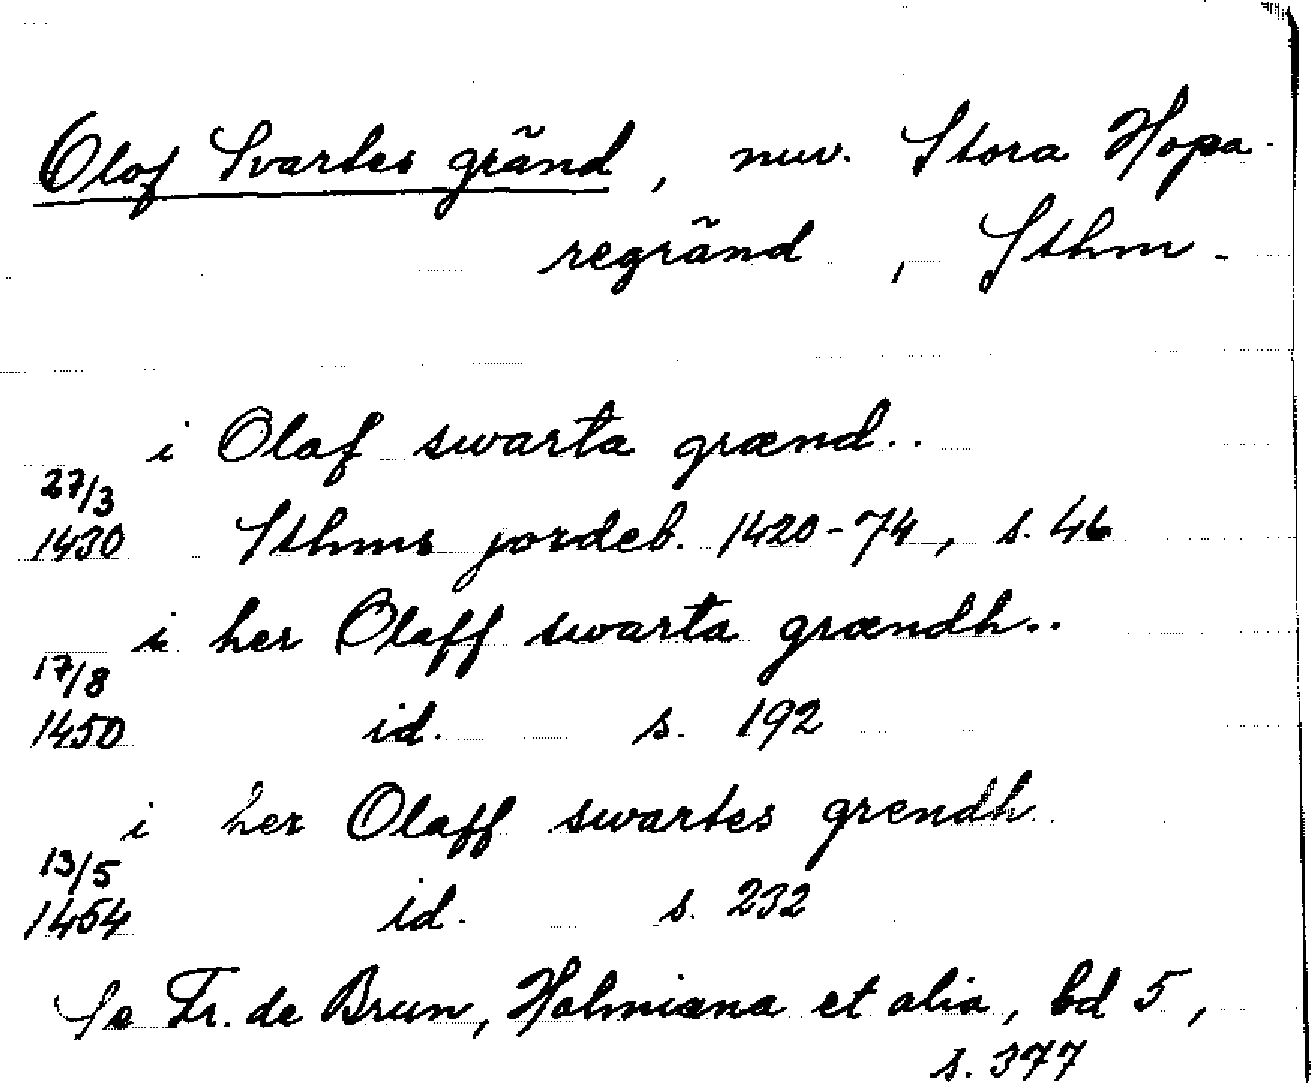 Olof Svartes gränd, nuv. Stora Hopa-
regränd, Sthm.
i Olaf swarta grænd..
27/3
1430 Sthms jordeb. 1420-74, s. 46
i her Olaff swarta grændh..
17/8
1450 id. s. 192
i her Olaff swartes grendh
13/5
1454 id. s. 232
Se Fr. de Brun, Holmiana et alia, bd 5,
s. 377